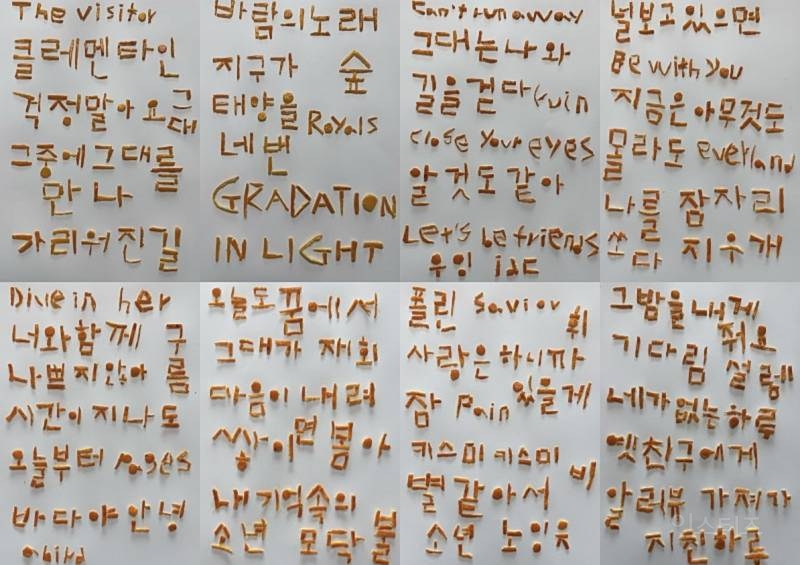 The visitor
클레멘타인
걱정말아요 그대
그중에 그대를
만나
가리워진길
바람의노래
지구가 숲
태양을 Royals
네번
GRADATION
IN LIGHT
Can't run away
그대는 나와
길을 걷다 Ruin
close your eyes
알것도 같아
Let's be friends
널보고있으면
Be with you
지금은 아무것도
몰라도 everland
나를 잠자리
쏘다 지우개
Dive in her
너와함께 구름
나쁘지않아
시간이 지나도
오늘부터 Pages
바다야 안녕
a bird
오늘도 꿈에서
그대가 재회
마음이 내려
쌓이면 봄아
내기억속의
소년 모닥불
풀린 Savior 휘
사랑은 하니까
잠 Pain 있을게
키스미 키스미
별 같아서 비
소년
그밤을 내게
줘요
기다림 설렘
내가 없는하루
옛친구에게
알러뷰
지친하루